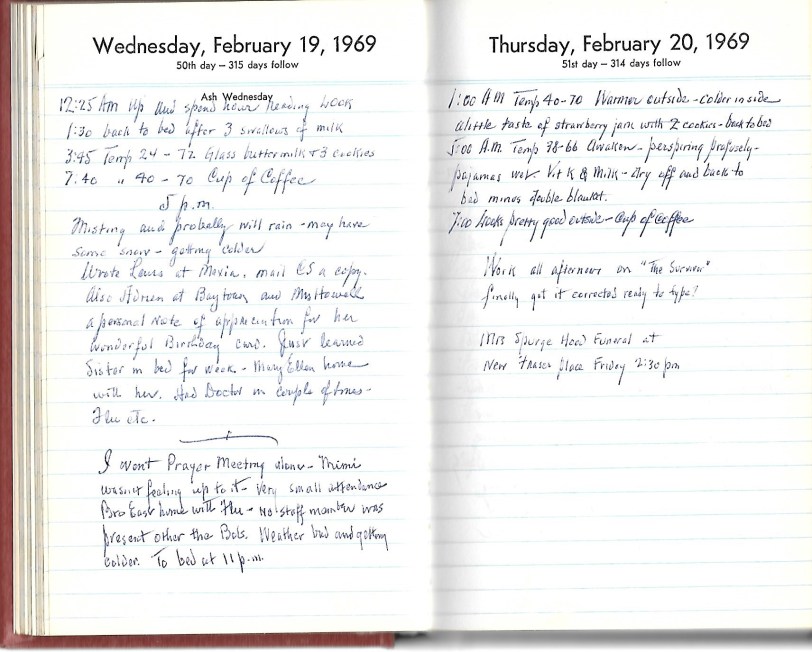 Wednesday, February 19, 1969
50th day — 315 days follow
Ash Wednesday
12:25 Am Up and spend hour reading Look
1:30 back to bed after 3 swallows of milk
3:45 Temp 24 - 72 Glass buttermilk + 3 cookies
7:40 " 40 - 70 Cup of Coffee
5 p.m.
Misting and probally will rain - may have
some snow - getting colder
Wrote Lewis at Mexia, mail CS a copy.
Also at Baytown and Mrs Howell
a personal note of appreciation for her
wonderful Birthday card. Just learned
Sister in bed for week - Mary Ellen home
with her. Had Doctor in couple of times -
Flu etc.
I went Prayer Meeting alone - Mimi
wasn't feeling up to it - very small attendance
Bro East home with Flu - No staff member was
present other the Bob. Weather bad and getting
colder. To bed at 11 p.m.
Thursday, February 20, 1969
51st day — 314 days follow
1:00 AM Temp 40-70 Warmer outside - colder inside
a little taste of strawberry jam with 2 cookies - back to bed
5:00 A.M. Temp 38-66 Awaken - perspiring profusely -
pajamas wet. Vit & Milk - dry off and back to
bed minus double blanket.
7:00 Looks pretty good outside - Cup of Coffee
Work all afternoon on "The Survivor"
finally got it corrected ready to type!
Mrs Spurge Hood Funeral at
New Fraser place Friday 2:30 pm